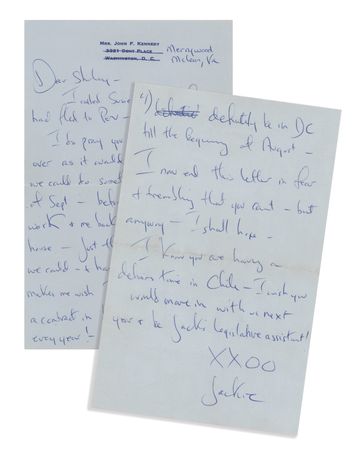 MRS. JOHN F. KENNEDY
3321 DENT PLACE
WASHINGTON, D. C.
Merrywood
McLean, Va
Dear
I called
had fled to
I do pray you
over as it would
we could do some
of Sept -
work + me
house - Just
we could -
makes me wish
a contract in
every year!
4) definitely be in DC
till the beginning of August -
I now end this letter in fear
+ trembling that you won't - but
anyway - I shall hope -
I know you are having a
delirious time in Chile - I wish you
would move in with us next
year + be Jack's legislative assistant!
XXOO
Jackie